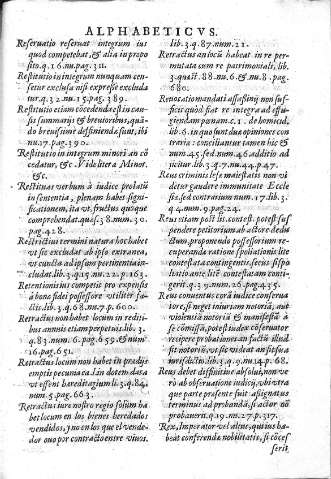 ALPHABETICVS.
Reseruatio reseruat integrum ius
quod competebat, & alia in propo
sito. q. 16. nu. pag. 311.
Restitutio in integrum nunquam cen-
setur exclusa nisi expressè excluda
tur. q. 32. nu. 15. pag. 389.
Restitutio etiam cōcedenda est in cau-
sis summarijs & breuioribus, quā-
do breuissimè destiniendæ sunt, ibi
nu. 17. pag. 390.
Restitutio in integrum minori an cō
cedatur, &c. Vide litera Minor.
&c.
Restituas verbum à iudice prolatū
in sententia, plenam habet signi-
ficationem, ita vt fructus quoque
comprehendat. quæst. 38. num. 30.
pag. 428.
Restrictus termini natura hoc habet
vt sic excludat ab ipso extranea,
vt cuncta ad ipsum pertinentia in-
cludat. lib. 3. q. 25. nu. 22. p. 163.
Retentionis ius competit pro expensis
à bonæ fidei possessore vtiliter fa-
ctis. lib. 3. q. 68. nu. 7. p. 600.
Retractus non habet locum in rediti-
bus annuis etiam perpetuis. lib. 3.
q. 83. num. 6. pag. 659. & num
16. pag. 651.
Retractus locum non habet in prædijs
emptis pecunia ea. l. in dotem data
vt essent hæreditagium lib. 3. q. 84.
num. 5. pag. 663.
Retractus iure nostro regio solùm ha
bet locum en los bienes heredados
vendidos, y no en los que el vende-
dor ouo por contracto entre viuos.
lib. 3. q. 87. num. 21.
Retractus an locū habeat in re per-
mutata cum re patrimoniali, lib.
3. quæst. 88. nu. 6. & nu. 8. pag.
680.
Reuocatio mandati assassinij non suf-
ficit quòd fiat re integra ad effu-
giendam pœnam. c. 1. de homicid,
lib. 6. in quo sunt duæ opiniones con
trariæ: conciliantur tamen hic &
num. 45. sed num. 46. additio ad-
ijcitur. lib. 3. q. 17. nu. 44. p. 47.
Reus criminis læsæ maiestatis non vi
detur gaudere immunitate Eccle
siæ. sed contrarium num. 17. lib. 3.
q. 4. num. 9. pag. 24.
Reus etiam post lit. contest. potest suf
pendere petitorium ab actore dedu
ctum, proponendo possessorium re-
cuperandæ ratione spoliationis lite
contestata contingentis, secus si spo
liatio ante litē contestatam conti-
gerit. q. 39. num. 26. pag. 435.
Reus conuentus corā iudice conserua
tore, si neget iniuriam notoriā, aut
violentiā notoriā & manifestā à
se cōmissā, potest iudex cōseruator
recipere probationes an factū illud
sit notoriū, vt sic videat an sit suæ
iurisdictiōis. lib. 3. q. 9. nu. 14. p. 68.
Reus debet diffinitiuè absolui, non ve
rò ab obseruatione iudicij, vbi vtra
que parte præsente fuit assignatus
terminus ad probandū, si actor nō
probauerit. q. 19. nu. 27. p. 317.
Rex, Imperator vel alius, quis ius ha-
beat conferendæ nobilitatis, si cōces
serit